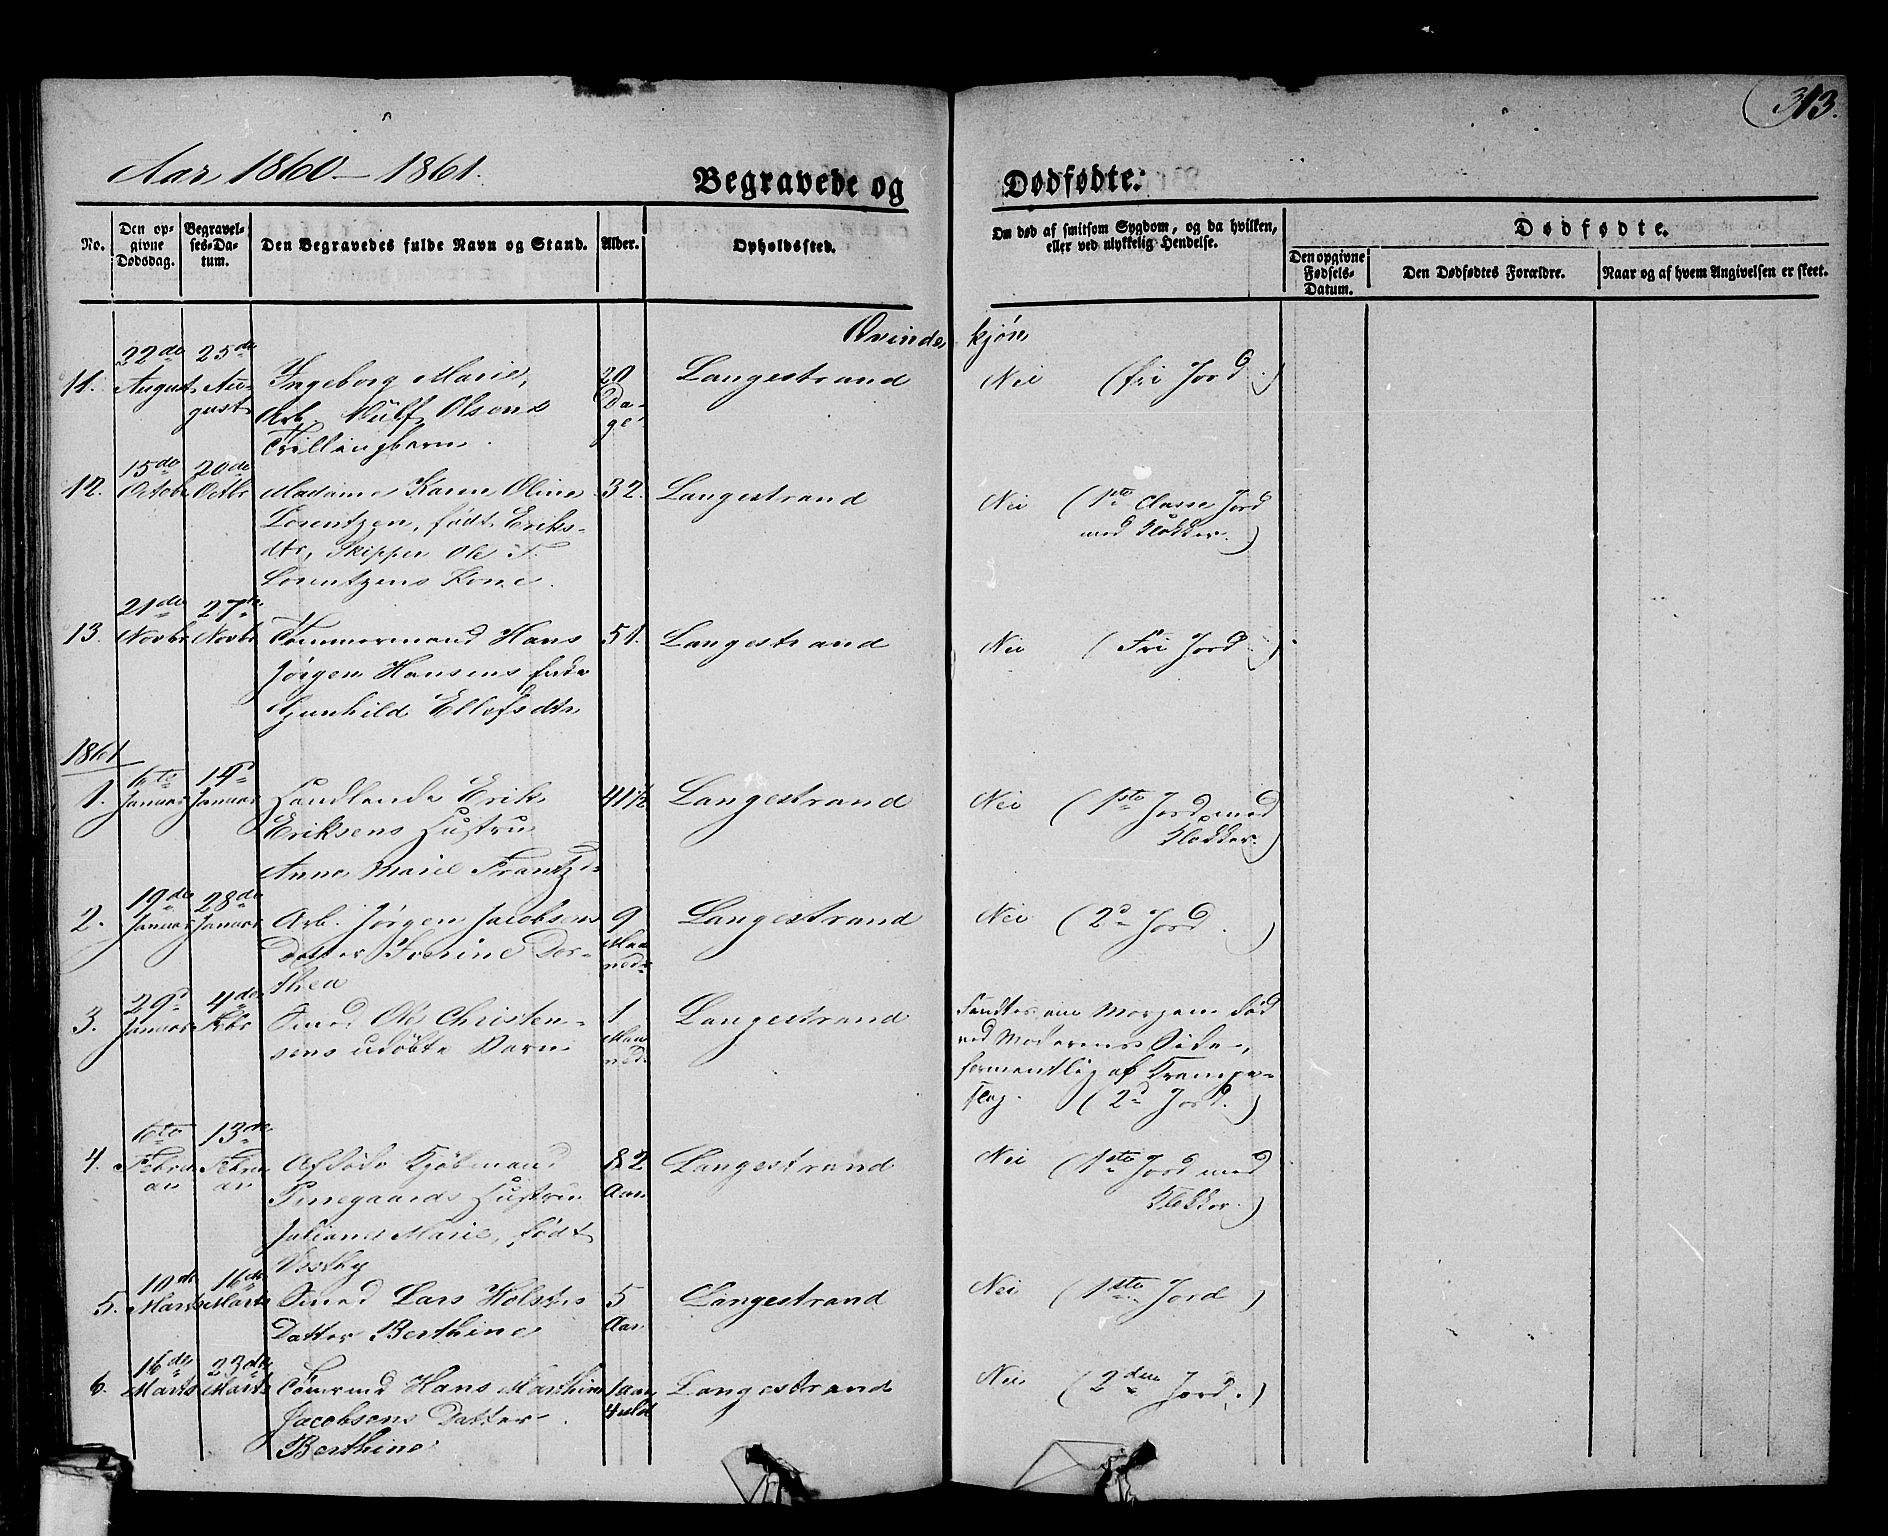 313.
Aar 1860 – 1861.
Begravede og Dødfødte:
No.
Den opgivne Dødsdag.
Begravelses-Datum.
Den Begravedes fulde Navn og Stand.
Alder.
Opholdssted.
Om død af smitsom Sygdom, og da hvilken,
eller ved ulykkelig Hendelse.
Dødfødte.
Den opgivne Fødsels-Datum.
Den Dødfødtes Forældre.
Naar og af hvem Angivelsen er skeet.
Qvindekjøn
22de 25de
11. August August Ingeborg Marie, 20 Langestrand Nei (fri Jord.)
Arb. Olsens Dage
Trillingbarn.
15de 20de
12. Octobr Octbr Madame Karen Oline 32. Langestrand Nei (1ste Classe Jord
Lorentzen, født Eriks- med Klokker.)
dtr, Skipper Ole T.
Lorentzens Kone.
21de 27de
13. Novbr Novbr Tømmermand Hans 51. Langestrand Nei (Fri Jord.)
Jørgen Hansens
Gunhild Ellefsdtr
1861
6te 14d
1. Januar Januar Handlende Erik 41½ Langestrand Nei (1ste Jord med
Eriksens Hustru Klokker.)
Anne Marie Frantzd.
19de 28de
2. Januar Januar Arb. Jørgen Jacobsens 9 Langestrand Nei (2d Jord.)
Datter Severine Dor- Maa-
thea neder
29d 4de
3. Januar Febr Smed Ole Christen- 1 Langestrand Fandtes en Morgen død
sens udøbte Barn Maa- ved Moderens Side,
ned. formentlig af Krampe-
slag. (2d Jord.)
6te 13de
4. Februar Februar Afdøde Kjøbmand 82 Langestrand Nei (1ste Jord med
Hustru Aar Klokker.)
Juliane Marie, født
Vestby
10de 16de
5. Marts Marts Smed Lars Holstes 5 Langestrand Nei (1ste Jord)
Datter Berthine Aar
16de 23de
6. Marts Marts Tømmd Hans Marthin 1 aar Langestrand Nei (2den Jord.)
Jacobsens Datter 4 Md
Berthine